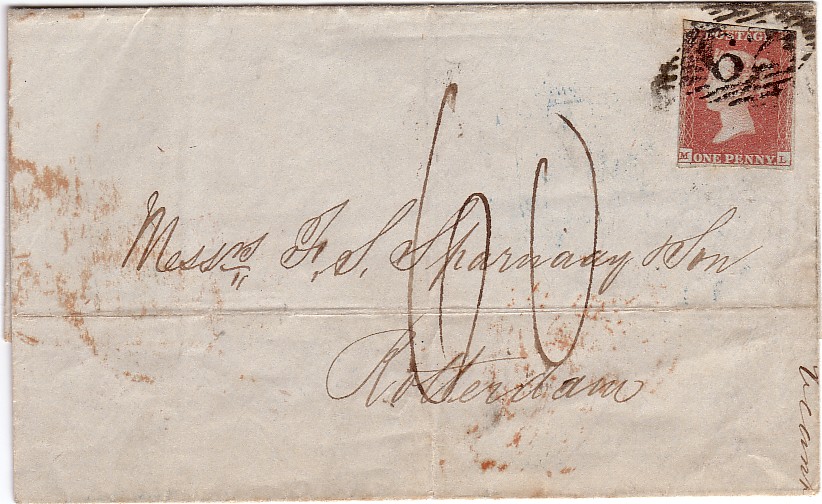 POSTAGE
6
M ONE PENNY L
60
Messrs F. S. Sparnaay & Son
Rotterdam